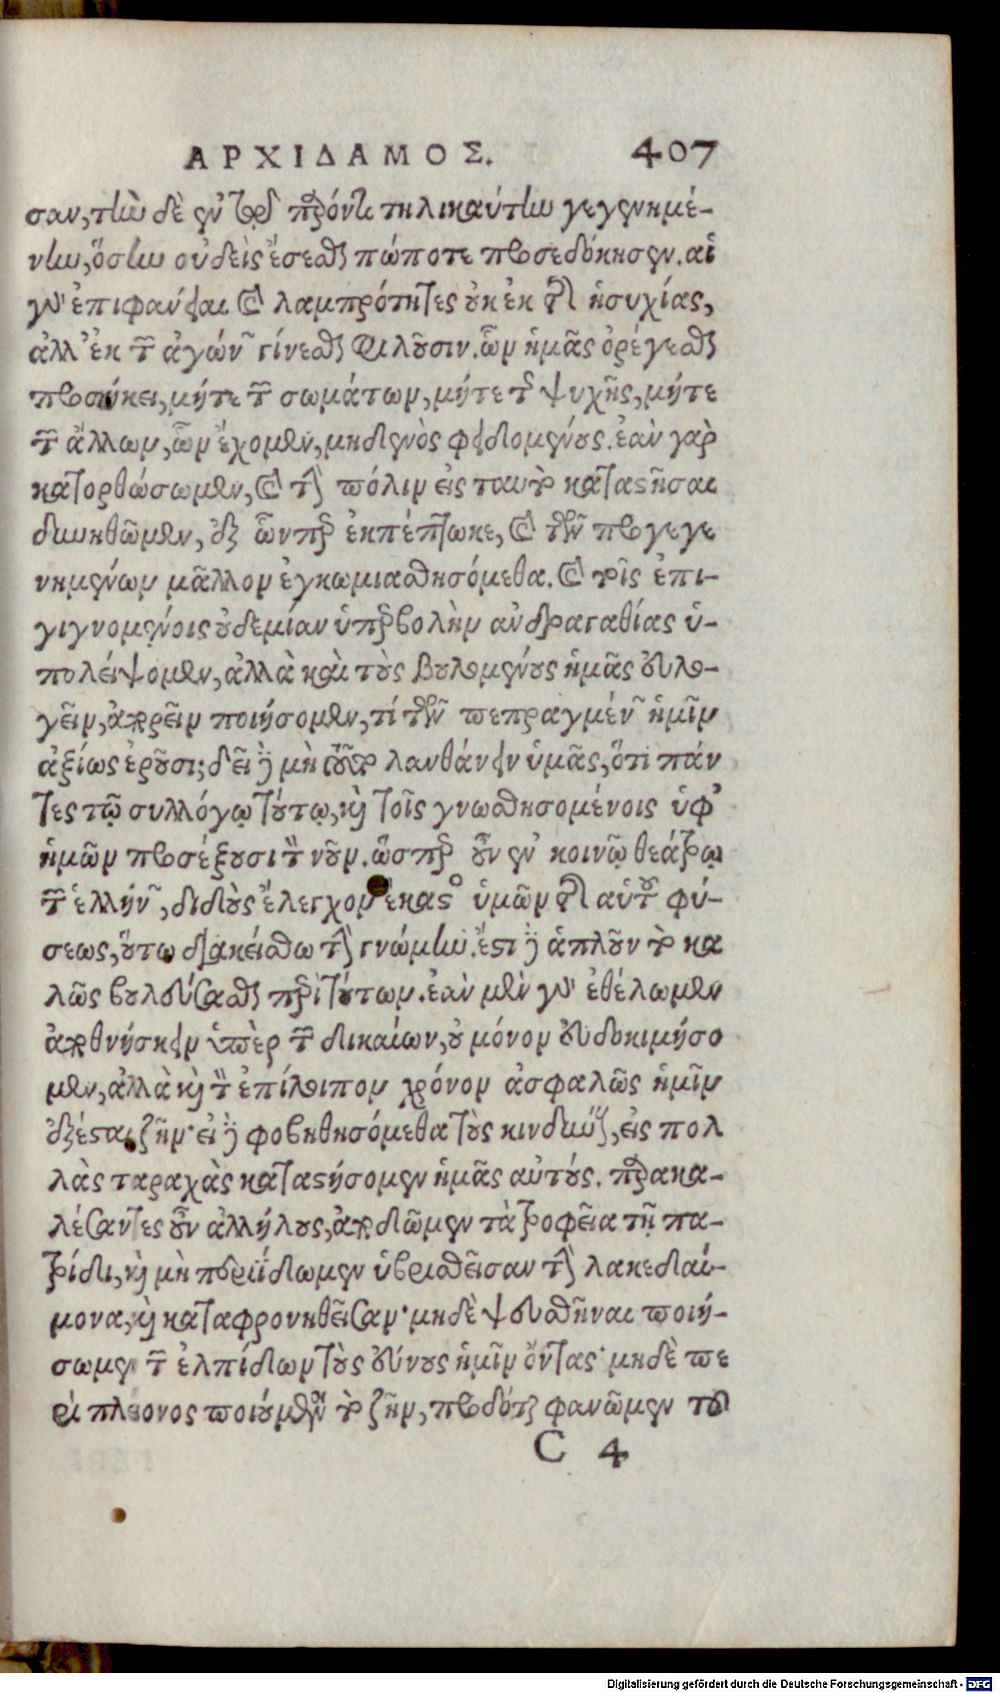 ΑΡΧΙΔΑΜΟΣ. 407
σαν, τὴν δὲ ἐν τῷ παρόντι τηλικαύτην γεγενημέ-
νην, ὅσην οὐδεὶς ἔσεσθαι πώποτε προσεδόκησεν. αἱ
γὰρ ἐπιφάνειαι καὶ λαμπρότητες οὐκ ἐκ τῆς ἡσυχίας,
ἀλλ' ἐκ τῶν ἀγώνων γίνεσθαι φιλοῦσιν. ὧν ἡμᾶς ὀρέγεσθαι
προσήκει, μήτε τῶν σωμάτων, μήτε τῆς ψυχῆς, μήτε
τῶν ἄλλων, ὧν ἔχομεν, μηδενὸς φειδομένους. ἐὰν γὰρ
κατορθώσωμεν, καὶ τὴν πόλιν εἰς ταυτὸ καταστῆσαι
δυνηθῶμεν, ἐξ ὧνπερ ἐκπέπτωκε, καὶ τῶν προγεγε
νημένων μᾶλλον ἐγκωμιασθησόμεθα. καὶ τοῖς ἐπι-
γιγνομένοις οὐδεμίαν ὑπερβολὴν ἀνδραγαθίας ὑ-
πολείψομεν, ἀλλὰ καὶ τοὺς βουλομένους ἡμᾶς εὐλο-
γεῖν, ἀπορεῖν ποιήσομεν, τί τῶν πεπραγμένων ἡμῖν
ἀξίως ἐροῦσι; δεῖ δὲ μὴ τοῦτο λανθάνειν ὑμᾶς, ὅτι πάν
τες τῷ συλλόγῳ τούτῳ, καὶ τοῖς γνωσθησομένοις ὑφ'
ἡμῶν προσέξουσι τὸν νοῦν. ὥσπερ οὖν ἐν κοινῷ θεάτρῳ
τῶν ἑλλήνων, διδοὺς ἔλεγχον ἕκαστος ὑμῶν τῆς αὑτοῦ φύ-
σεως, οὕτω διακείσθω τὴν γνώμην. ἔστι δὲ ἁπλοῦν τὸ κα
λῶς βουλεύσασθαι περὶ τούτων. ἐὰν μὲν γὰρ ἐθέλωμεν
ἀποθνήσκειν ὑπὲρ τῶν δικαίων, οὐ μόνον εὐδοκιμήσο
μεν, ἀλλὰ καὶ τὸν ἐπίλοιπον χρόνον ἀσφαλῶς ἡμῖν
ἐξέσται ζῆν· εἰ δὲ φοβηθησόμεθα τοὺς κινδύνους, εἰς πολ
λὰς ταραχὰς καταστήσομεν ἡμᾶς αὐτούς. παρακα-
λέσαντες οὖν ἀλλήλους, ἀποδῶμεν τὰ τροφεῖα τῇ πα-
τρίδι, καὶ μὴ περιΐδωμεν ὑβρισθεῖσαν τὴν λακεδαί-
μονα, καὶ καταφρονηθεῖσαν· μηδὲ ψευσθῆναι ποιή-
σωμεν τῶν ἐλπίδων τοὺς εὔνους ἡμῖν ὄντας· μηδὲ πε
ρὶ πλέονος ποιούμενοι τὸ ζῆν, προδόται φανῶμεν τοῦ
C 4
Digitalisierung gefördert durch die Deutsche Forschungsgemeinschaft - DFG